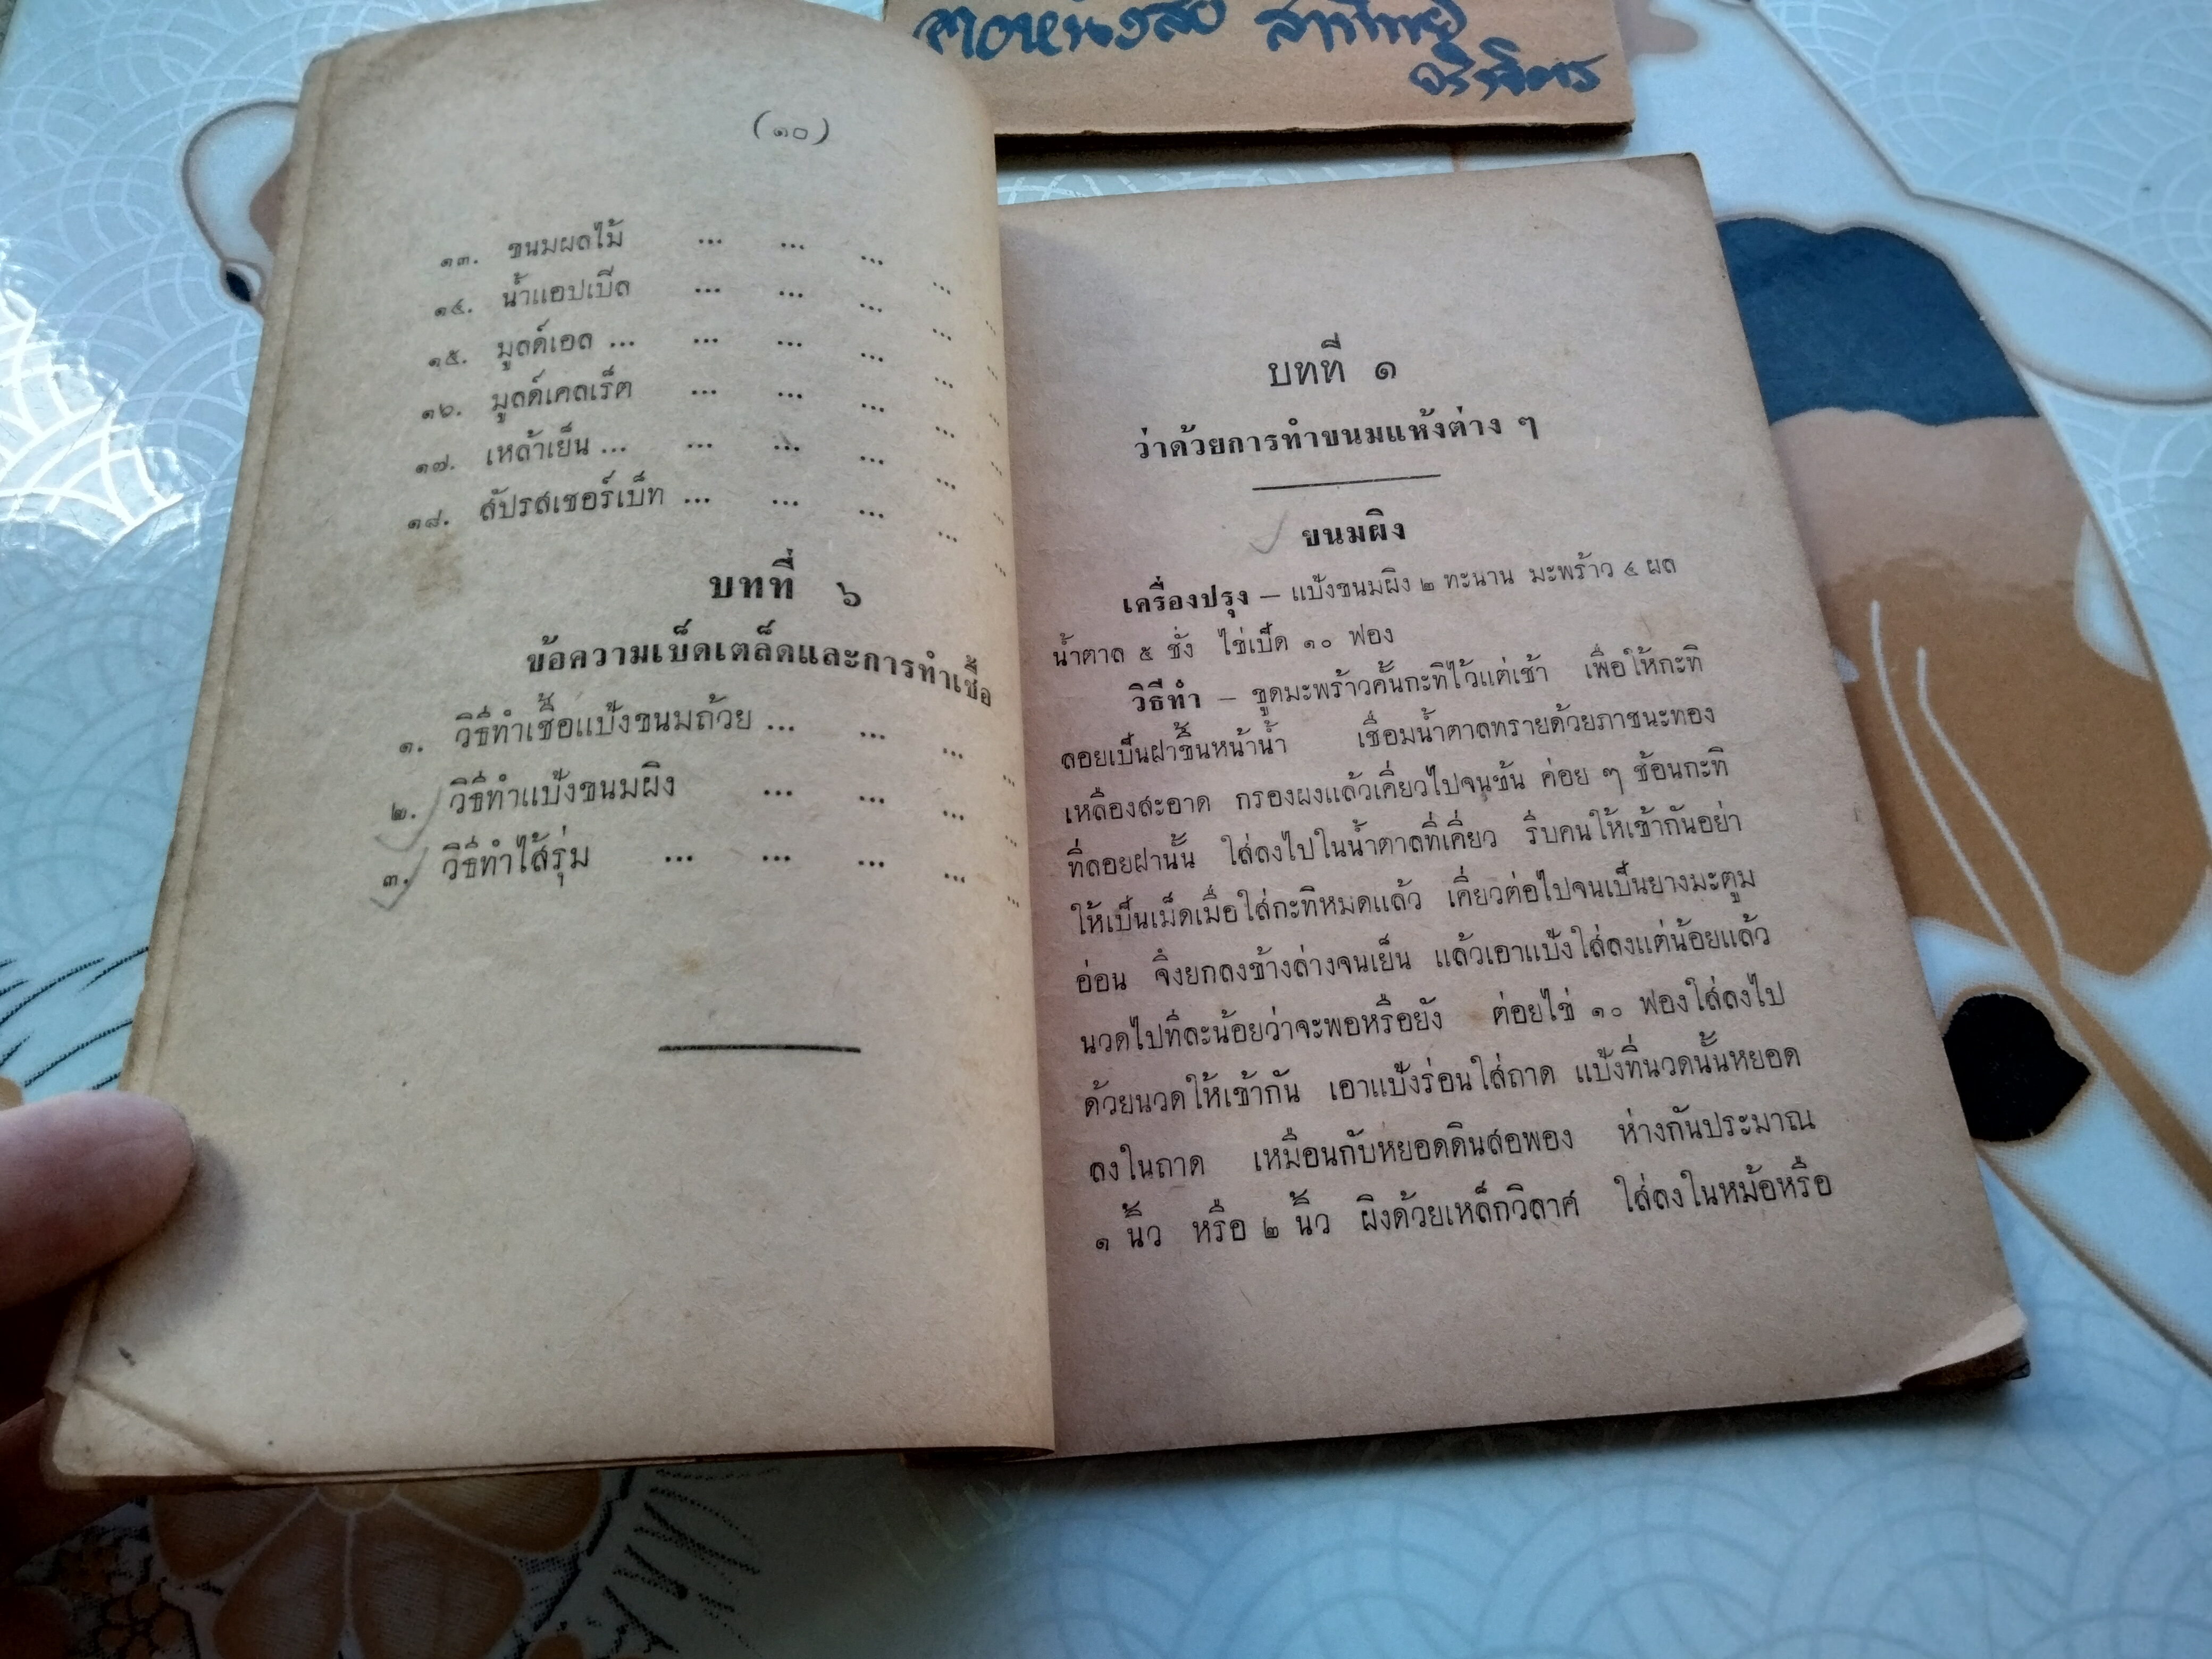 (๑๐)
๑๓. ขนมผลไม้ ... ... ... ...
๑๔. น้ำแอปเบีล ... ... ... ...
๑๕. มูลด์เอล ... ... ... ... ...
๑๖. มูลด์เคลเร็ต ... ... ... ...
๑๗. เหล้าเย็น ... ... ... ... ...
๑๘. สัปรสเชอร์เบ็ท ... ... ... ...
บทที่ ๖
ข้อความเบ็ดเตล็ดและการทำเชื้อ
๑. วิธีทำเชื้อแป้งขนมถ้วย ... ... ...
๒. วิธีทำแป้งขนมผิง ... ... ...
๓. วิธีทำไส้รุ่ม ... ... ... ...
สาททิพย์
บทที่ ๑
ว่าด้วยการทำขนมแห้งต่าง ๆ
ขนมผิง
เครื่องปรุง — แป้งขนมผิง ๒ ทะนาน มะพร้าว ๔ ผล
น้ำตาล ๕ ชั่ง ไข่เป็ด ๑๐ ฟอง
วิธีทำ — ขูดมะพร้าวคั้นกะทิไว้แต่เช้า เพื่อให้กะทิ
ลอยเป็นฝาขึ้นหน้าน้ำ เชื่อมน้ำตาลทรายด้วยภาชนะทอง
เหลืองสะอาด กรองผงแล้วเคี่ยวไปจนข้น ค่อย ๆ ช้อนกะทิ
ที่ลอยฝานั้น ใส่ลงไปในน้ำตาลที่เคี่ยว รีบคนให้เข้ากันอย่า
ให้เป็นเม็ดเมื่อใส่กะทิหมดแล้ว เคี่ยวต่อไปจนเป็นยางมะตูม
อ่อน จึงยกลงข้างล่างจนเย็น แล้วเอาแป้งใส่ลงแต่น้อยแล้ว
นวดไปทีละน้อยว่าจะพอหรือยัง ต่อยไข่ ๑๐ ฟองใส่ลงไป
ด้วยนวดให้เข้ากัน เอาแป้งร่อนใส่ถาด แป้งที่นวดนั้นหยอด
ลงในถาด เหมือนกับหยอดดินสอพอง ห่างกันประมาณ
๑ นิ้ว หรือ ๒ นิ้ว ผิงด้วยเหล็กวิลาศ ใส่ลงในหม้อหรือ